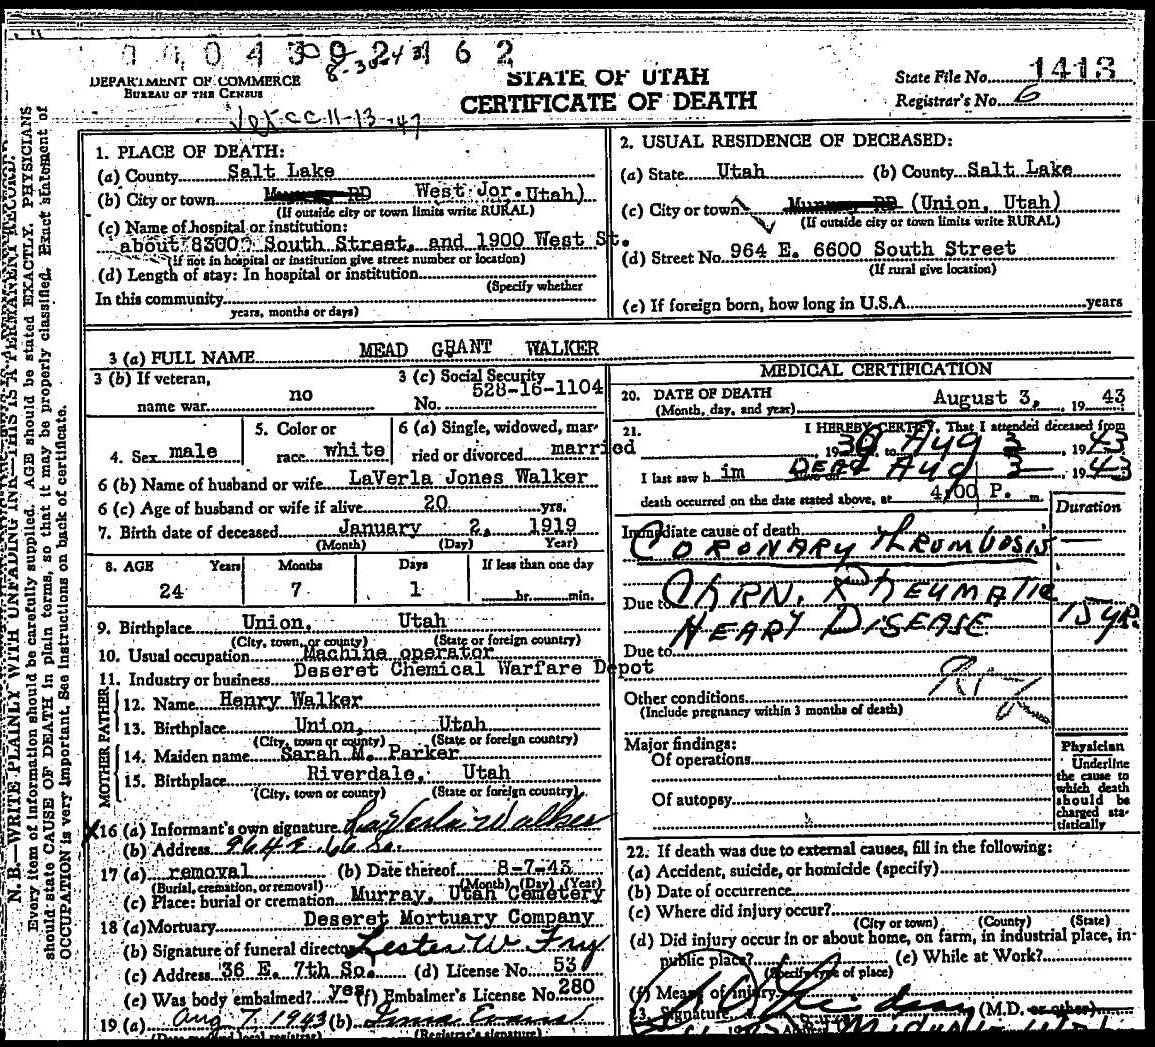 8-30-43
DEPARTMENT OF COMMERCE
BUREAU OF THE CENSUS
STATE OF UTAH
CERTIFICATE OF DEATH
State File No. 1413
Registrar's No. 6
11-13-47
N. B.—WRITE PLAINLY WITH UNFADING INK—THIS IS A PERMANENT RECORD.
Every item of information should be carefully supplied. AGE should be stated EXACTLY. PHYSICIANS
should state CAUSE OF DEATH in plain terms, so that it may be properly classified. Exact statement of
OCCUPATION is very important. See instructions on back of certificate.
1. PLACE OF DEATH:
(a) County Salt Lake
(b) City or town Murray RD West Jor. Utah)
(If outside city or town limits write RURAL)
(c) Name of hospital or institution:
about 8300? South Street, and 1900 West St.
(If not in hospital or institution give street number or location)
(d) Length of stay: In hospital or institution
(Specify whether
In this community
years, months or days)
2. USUAL RESIDENCE OF DECEASED:
(a) State Utah (b) County Salt Lake
(c) City or town Murray RD (Union, Utah)
(If outside city or town limits write RURAL)
(d) Street No. 964 E. 6600 South Street
(If rural give location)
(e) If foreign born, how long in U.S.A. years
3 (a) FULL NAME MEAD GRANT WALKER
3 (b) If veteran,
name war no
3 (c) Social Security
No. 528-16-1104
4. Sex male
5. Color or
race white
6 (a) Single, widowed, mar-
ried or divorced married
6 (b) Name of husband or wife LaVerla Jones Walker
6 (c) Age of husband or wife if alive 20 yrs.
7. Birth date of deceased January 2, 1919
(Month) (Day) Year)
8. AGE Years Months Days If less than one day
24 7 1 hr. min.
9. Birthplace Union, Utah
(City, town, or county) (State or foreign country)
10. Usual occupation Machine operator
11. Industry or business Deseret Chemical Warfare Depot
FATHER
12. Name Henry Walker
13. Birthplace Union, Utah
(City, town or county) (State or foreign country)
MOTHER
14. Maiden name Sarah M. Parker
15. Birthplace Riverdale, Utah
(City, town or county) (State or foreign country)
X16 (a) Informant's own signature LaVerla Walker
(b) Address 964 E. 66 So.
17 (a) removal (b) Date thereof 8-7-43
(Burial, cremation, or removal) (Month) (Day) (Year)
(c) Place: burial or cremation Murray, Utah Cemetery
18 (a) Mortuary Deseret Mortuary Company
(b) Signature of funeral director Lester W. Fry
(c) Address 36 E. 7th So. (d) License No. 530
(e) Was body embalmed? yes (f) Embalmer's License No. 280
19 (a) Aug 7, 1943 (b) Irma Evans
(Date received local registrar) (Registrar's signature)
MEDICAL CERTIFICATION
20. DATE OF DEATH
(Month, day, and year) August 3, 1943
21. I HEREBY CERTIFY, That I attended deceased from
, 19 30, to Aug 3, 1943
I last saw h im DEAD Aug 3 1943
death occurred on the date stated above, at 4:00 P. m.
Duration
Immediate cause of death
CORONARY THROMBOSIS
Due to CHRN. RHEUMATIC
HEART DISEASE 15 yr.
Due to
Other conditions
(Include pregnancy within 3 months of death)
Major findings:
Of operations
Of autopsy
Physician
Underline
the cause to
which death
should be
charged sta-
tistically
22. If death was due to external causes, fill in the following:
(a) Accident, suicide, or homicide (specify)
(b) Date of occurrence
(c) Where did injury occur?
(City or town) (County) (State)
(d) Did injury occur in or about home, on farm, in industrial place, in
public place? (e) While at Work?
(Specify type of place)
(f) Means of injury
23. Signature (M.D. or other)
Midvale Utah